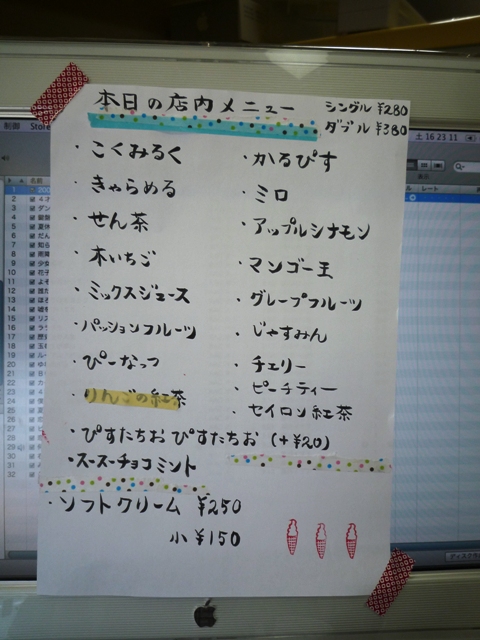 本日の店内メニュー
シングル ¥280
ダブル ¥380
・こくみるく
・きゃらめる
・せん茶
・木いちご
・ミックスジュース
・パッションフルーツ
・ぴーなっつ
・りんごの紅茶
・かるぴす
・ミロ
・アップルシナモン
・マンゴー王
・グレープフルーツ
・じゃすみん
・チェリー
・ピーチティー
・セイロン紅茶
・ぴすたちお ぴすたちお (+¥20)
・スースーチョコミント
・ソフトクリーム ¥250
小 ¥150
制御 Store
土 16:23 11
名前
レート
表示